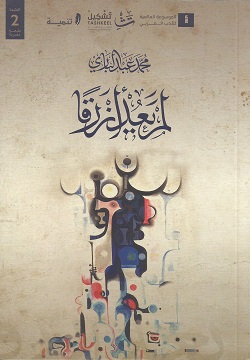 الموسوعة العالمية
للأدب العربي
تشكيل
TASHKEEL
تنمية
الطبعة
2
محمد عبد الباري
لم يعد أزرقا